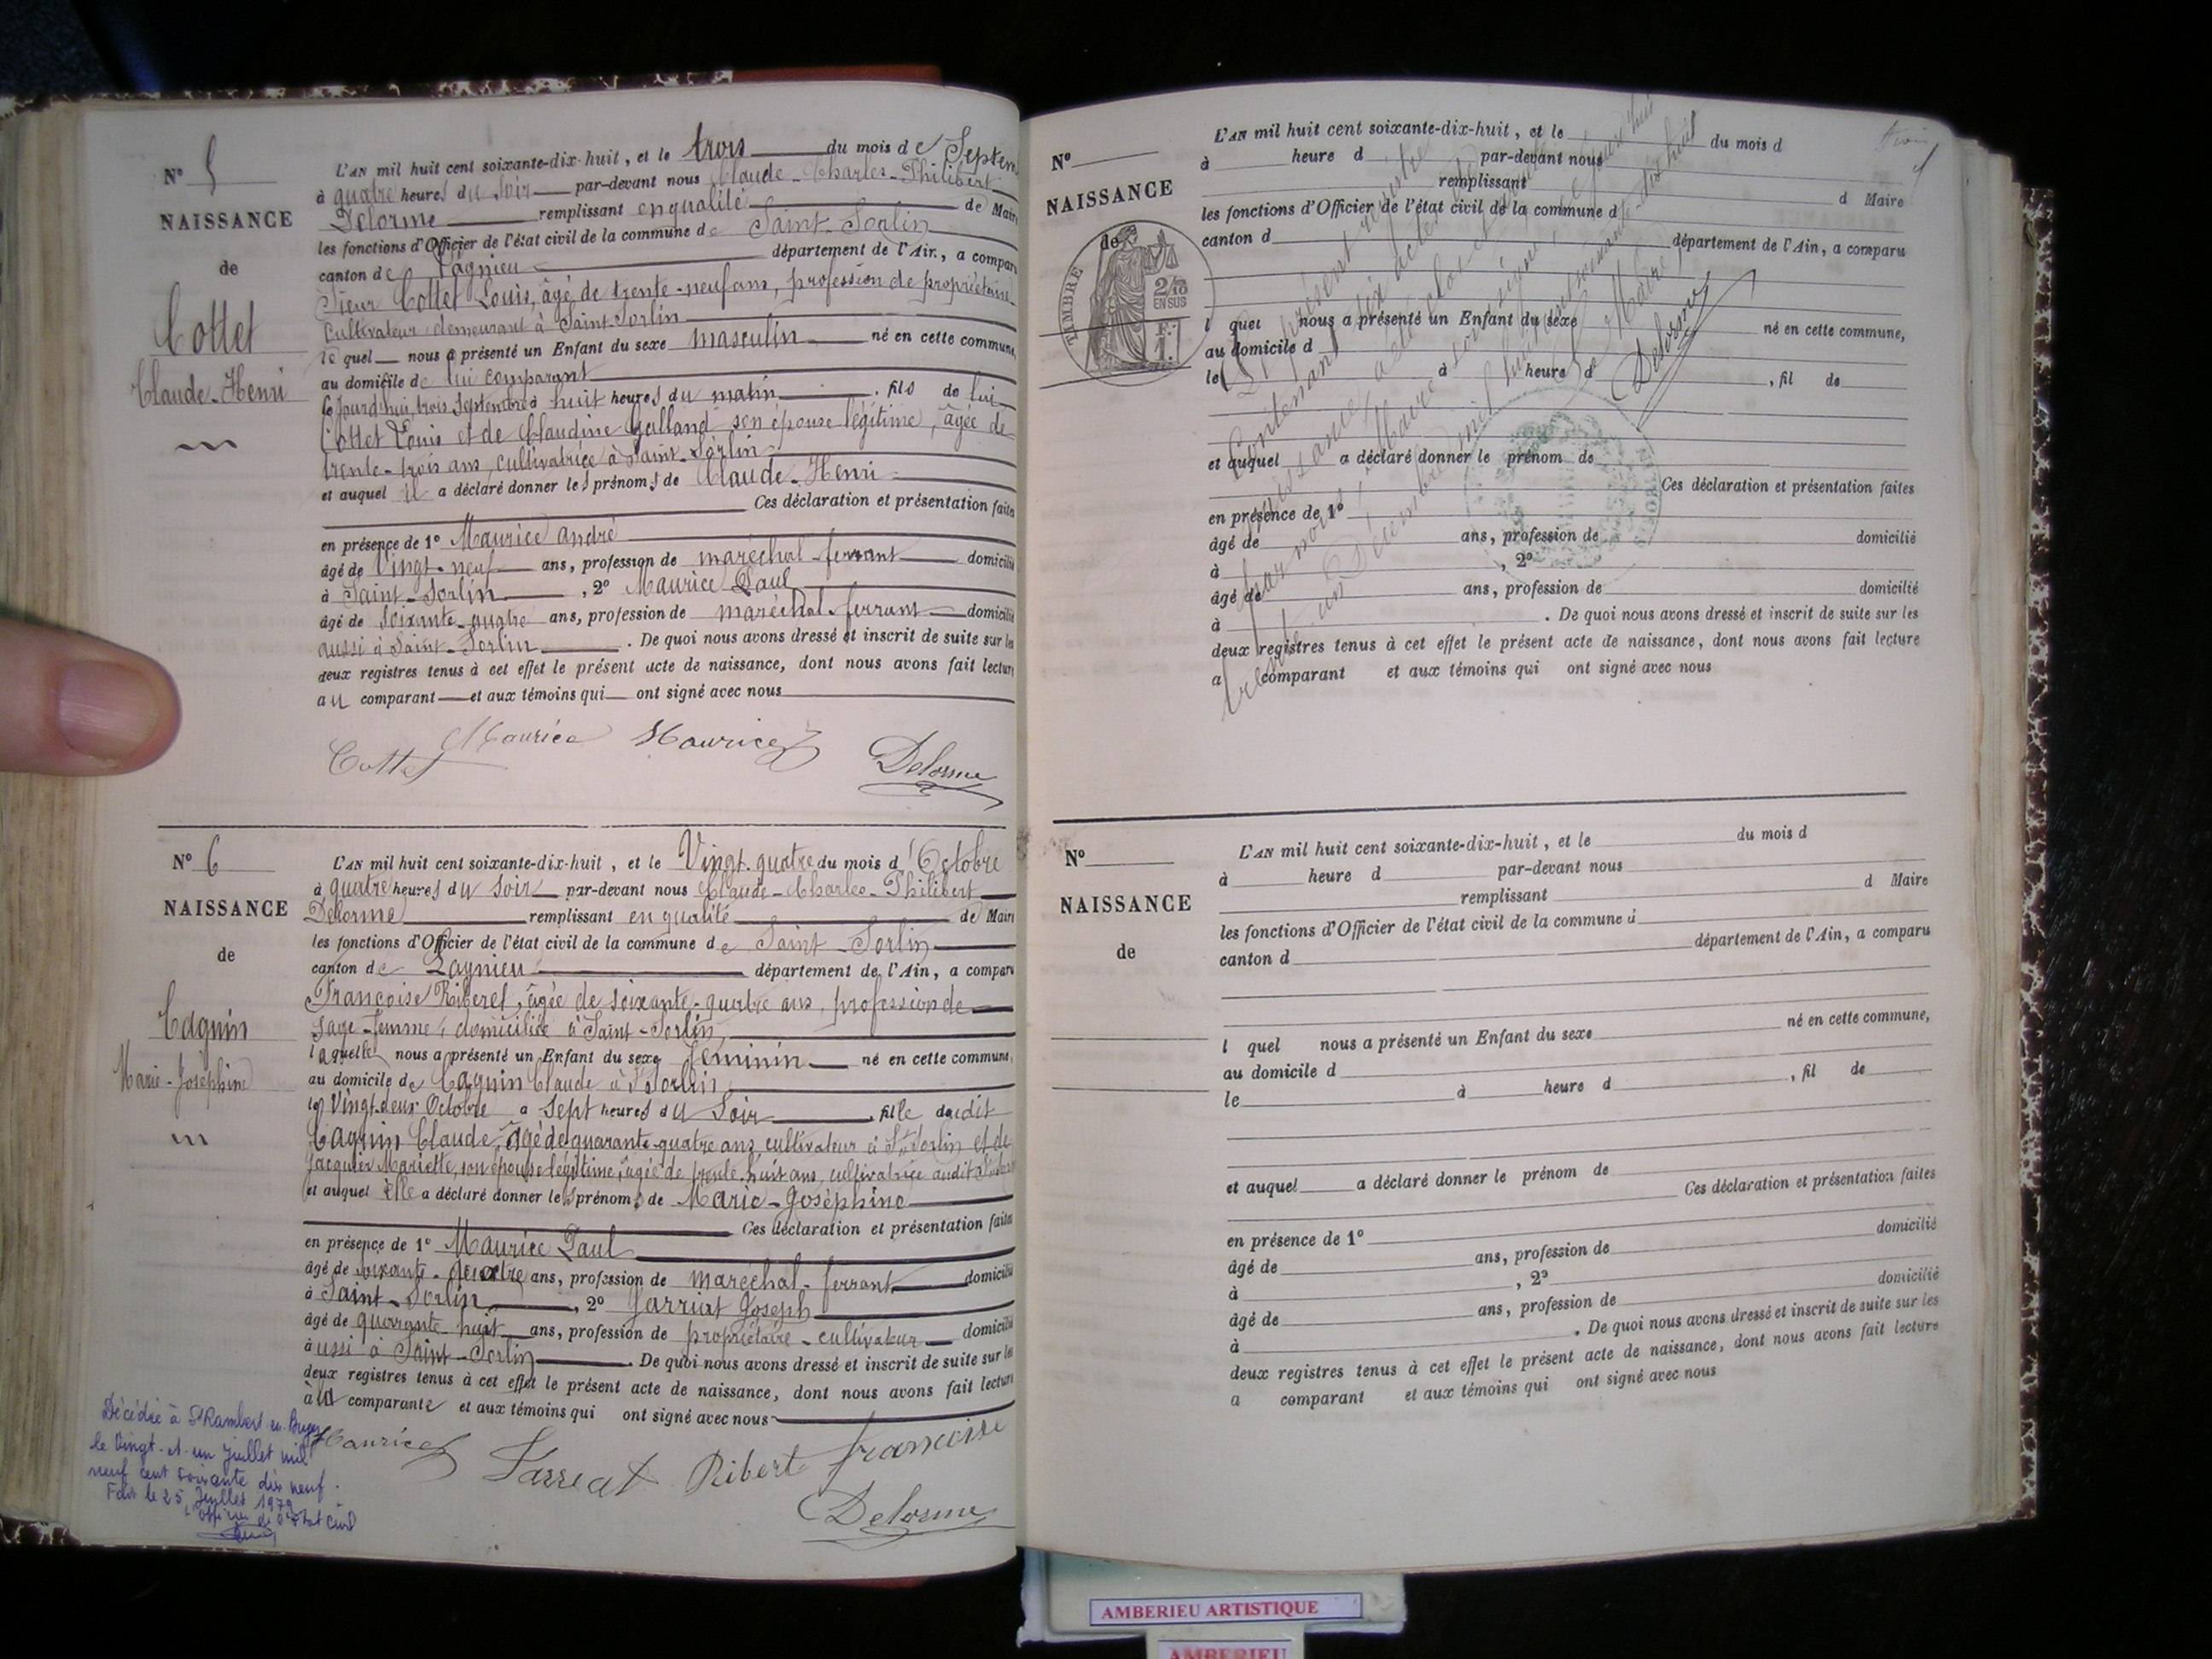 N° 5
NAISSANCE
de
Cottet
Claude-Henri
L'AN mil huit cent soixante-dix-huit, et le trois du mois de Septem
à quatre heures du soir par-devant nous Claude-Charles-Philibert
Delorme remplissant en qualité de Maire
les fonctions d'Officier de l'état civil de la commune de Saint-Sorlin
canton de Lagnieu département de l'Ain, a comparu
Sieur Cottet Louis, âgé de trente-neuf ans, profession de propriétaire
Cultivateur demeurant à Saint-Sorlin
lequel nous a présenté un Enfant du sexe masculin né en cette commune,
au domicile de lui comparant
ce jourd'hui, trois septembre à huit heures du matin. fils de lui
Cottet Louis et de Claudine Galland son épouse légitime, âgée de
trente-trois ans, cultivatrice à Saint-Sorlin
et auquel il a déclaré donner les prénoms de Claude-Henri
Ces déclaration et présentation faites
en présence de 1° Maurice André
âgé de Vingt-neuf ans, profession de maréchal-ferrant domicilié
à Saint-Sorlin, 2° Maurice Paul
âgé de soixante-quatre ans, profession de maréchal-ferrant domicilié
aussi à Saint-Sorlin. De quoi nous avons dressé et inscrit de suite sur les
deux registres tenus à cet effet le présent acte de naissance, dont nous avons fait lecture
au comparant et aux témoins qui ont signé avec nous
Cottet Maurice Maurice Delorme
N° 6
NAISSANCE
de
Caguin
Marie-Joséphine
L'AN mil huit cent soixante-dix-huit, et le Vingt-quatre du mois d'Octobre
à quatre heures du soir par-devant nous Claude-Charles-Philibert
Delorme remplissant en qualité de Maire
les fonctions d'Officier de l'état civil de la commune de Saint-Sorlin
canton de Lagnieu département de l'Ain, a comparu
Françoise Riberet, âgée de soixante-quatre ans, profession de
sage-femme, domiciliée à Saint-Sorlin,
laquelle nous a présenté un Enfant du sexe féminin né en cette commune,
au domicile de Caguin Claude à St Sorlin
le Vingt-deux Octobre à sept heures du soir, fille dudit
Caguin Claude, âgé de quarante-quatre ans, cultivateur à St Sorlin et de
Jacquier Mariette, son épouse légitime, âgée de trente-huit ans, cultivatrice audit
et auquel elle a déclaré donner les prénoms de Marie-Joséphine
Ces déclaration et présentation faites
en présence de 1° Maurice Paul
âgé de soixante-quatre ans, profession de maréchal-ferrant domicilié
à Saint-Sorlin, 2° Jarriat Joseph
âgé de quarante-huit ans, profession de propriétaire-cultivateur domicilié
aussi à Saint-Sorlin. De quoi nous avons dressé et inscrit de suite sur les
deux registres tenus à cet effet le présent acte de naissance, dont nous avons fait lecture
à la comparante et aux témoins qui ont signé avec nous
Maurice Jarreat Ribert françoise
Delorme
Décédée à St Rambert en Bugey
le Vingt-et-un Juillet mil
neuf cent soixante dix neuf.
Fait le 25 Juillet 1979
L'officier de l'Etat Civil
N°
NAISSANCE
de
TIMBRE
2/10
EN SUS
F.
1.
L'AN mil huit cent soixante-dix-huit, et le du mois d
à heure d par-devant nous
remplissant d Maire
les fonctions d'Officier de l'état civil de la commune d
canton d département de l'Ain, a comparu
l quel nous a présenté un Enfant du sexe né en cette commune,
au domicile d
le à heure d, fil de
et auquel a déclaré donner le prénom de
Ces déclaration et présentation faites
en présence de 1°
âgé de ans, profession de domicilié
à, 2°
âgé de ans, profession de domicilié
à. De quoi nous avons dressé et inscrit de suite sur les
deux registres tenus à cet effet le présent acte de naissance, dont nous avons fait lecture
a comparant et aux témoins qui ont signé avec nous
présent registre
Contenant
Le Maire
Delorme
N°
NAISSANCE
de
L'AN mil huit cent soixante-dix-huit, et le du mois d
à heure d par-devant nous
remplissant d Maire
les fonctions d'Officier de l'état civil de la commune d
canton d département de l'Ain, a comparu
l quel nous a présenté un Enfant du sexe né en cette commune,
au domicile d
le à heure d, fil de
et auquel a déclaré donner le prénom de
Ces déclaration et présentation faites
en présence de 1°
âgé de ans, profession de domicilié
à, 2°
âgé de ans, profession de domicilié
à. De quoi nous avons dressé et inscrit de suite sur les
deux registres tenus à cet effet le présent acte de naissance, dont nous avons fait lecture
a comparant et aux témoins qui ont signé avec nous
AMBERIEU ARTISTIQUE
AMBERIEU